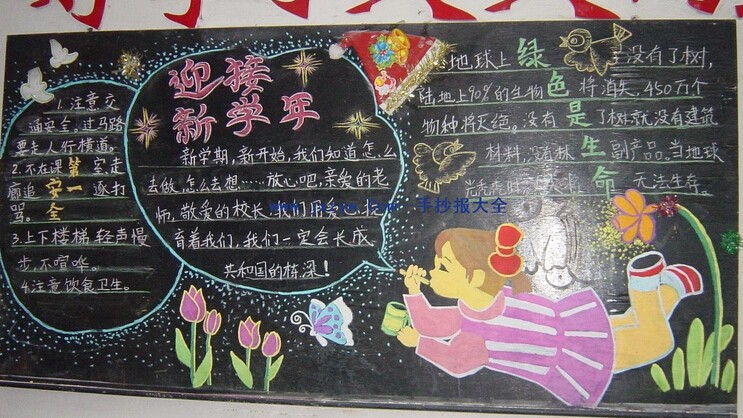 1.注意交
通安全。过马路
要走人行横道。
2.不在课室走
廊追逐打
骂。
第一
安全
3.上下楼梯,轻声慢
步,不喧哗。
4.注意饮食卫生。
迎接
新学年
新学期,新开始,我们知道怎么
去做,怎么去想……放心吧,亲爱的老
师,敬爱的校长,我们
育着我们,我们一定会长成
共和国的栋梁!
手抄报大全
绿色是生命
地球上 没有了树,
陆地上90%的生物 将消失,450万个
物种将灭绝。没有 了树就没有建筑
材料,没有林 副产品。当地球
无法生存。